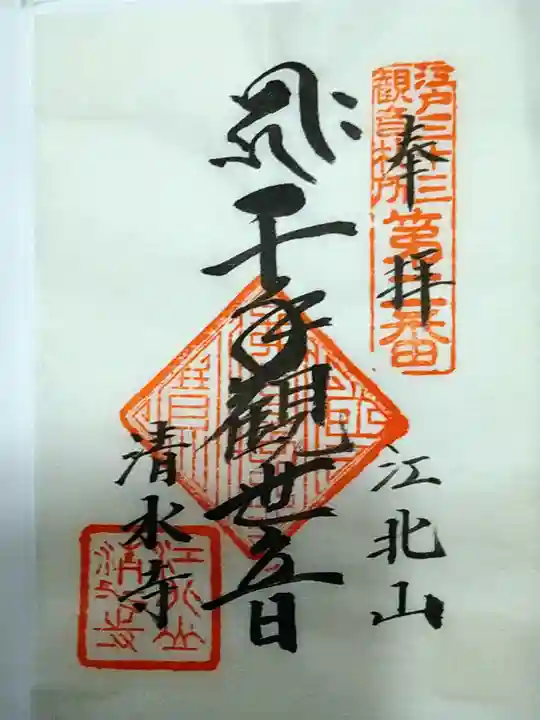 江戸三十三
観音札所
第二番
奉拝
江北山
千手觀世音
清水寺